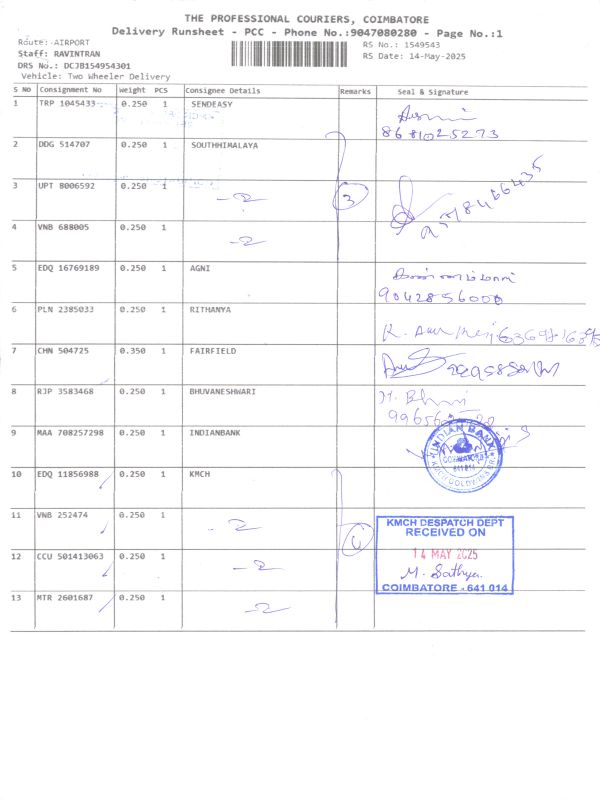 THE PROFESSIONAL COURIERS, COIMBATORE
Delivery Runsheet - PCC - Phone No.:9047080280 - Page No.:1
Route: AIRPORT
RS No.: 1549543
Staff: RAVINTRAN
RS Date: 14-May-2025
DRS No.: DCJB154954301
Vehicle: Two Wheeler Delivery
S No Consignment No Weight PCS Consignee Details Remarks Seal & Signature
1 TRP 1045433 0.250 1 SENDEASY
8681025273
2 DDG 514707 0.250 1 SOUTHHIMALAYA
3 UPT B006592 0.250 1 3
4 VNB 688005 0.250 1
5 EDQ 16769189 0.250 1 AGNI
9042856000
6 PLN 2385033 0.250 1 RITHANYA
K.
7 CHN 504725 0.350 1 FAIRFIELD
8 RJP 3583468 0.250 1 BHUVANESHWARI
9 MAA 708257298 0.250 1 INDIANBANK
INDIAN BANK
COIMBATORE
641 014
10 EDQ 11856988 0.250 1 KMCH
11 VNB 252474 0.250 1
KMCH DESPATCH DEPT
RECEIVED ON
12 CCU 501413063 0.250 1
14 MAY 2025
M. Sathya
COIMBATORE - 641 014
13 MTR 2601687 0.250 1